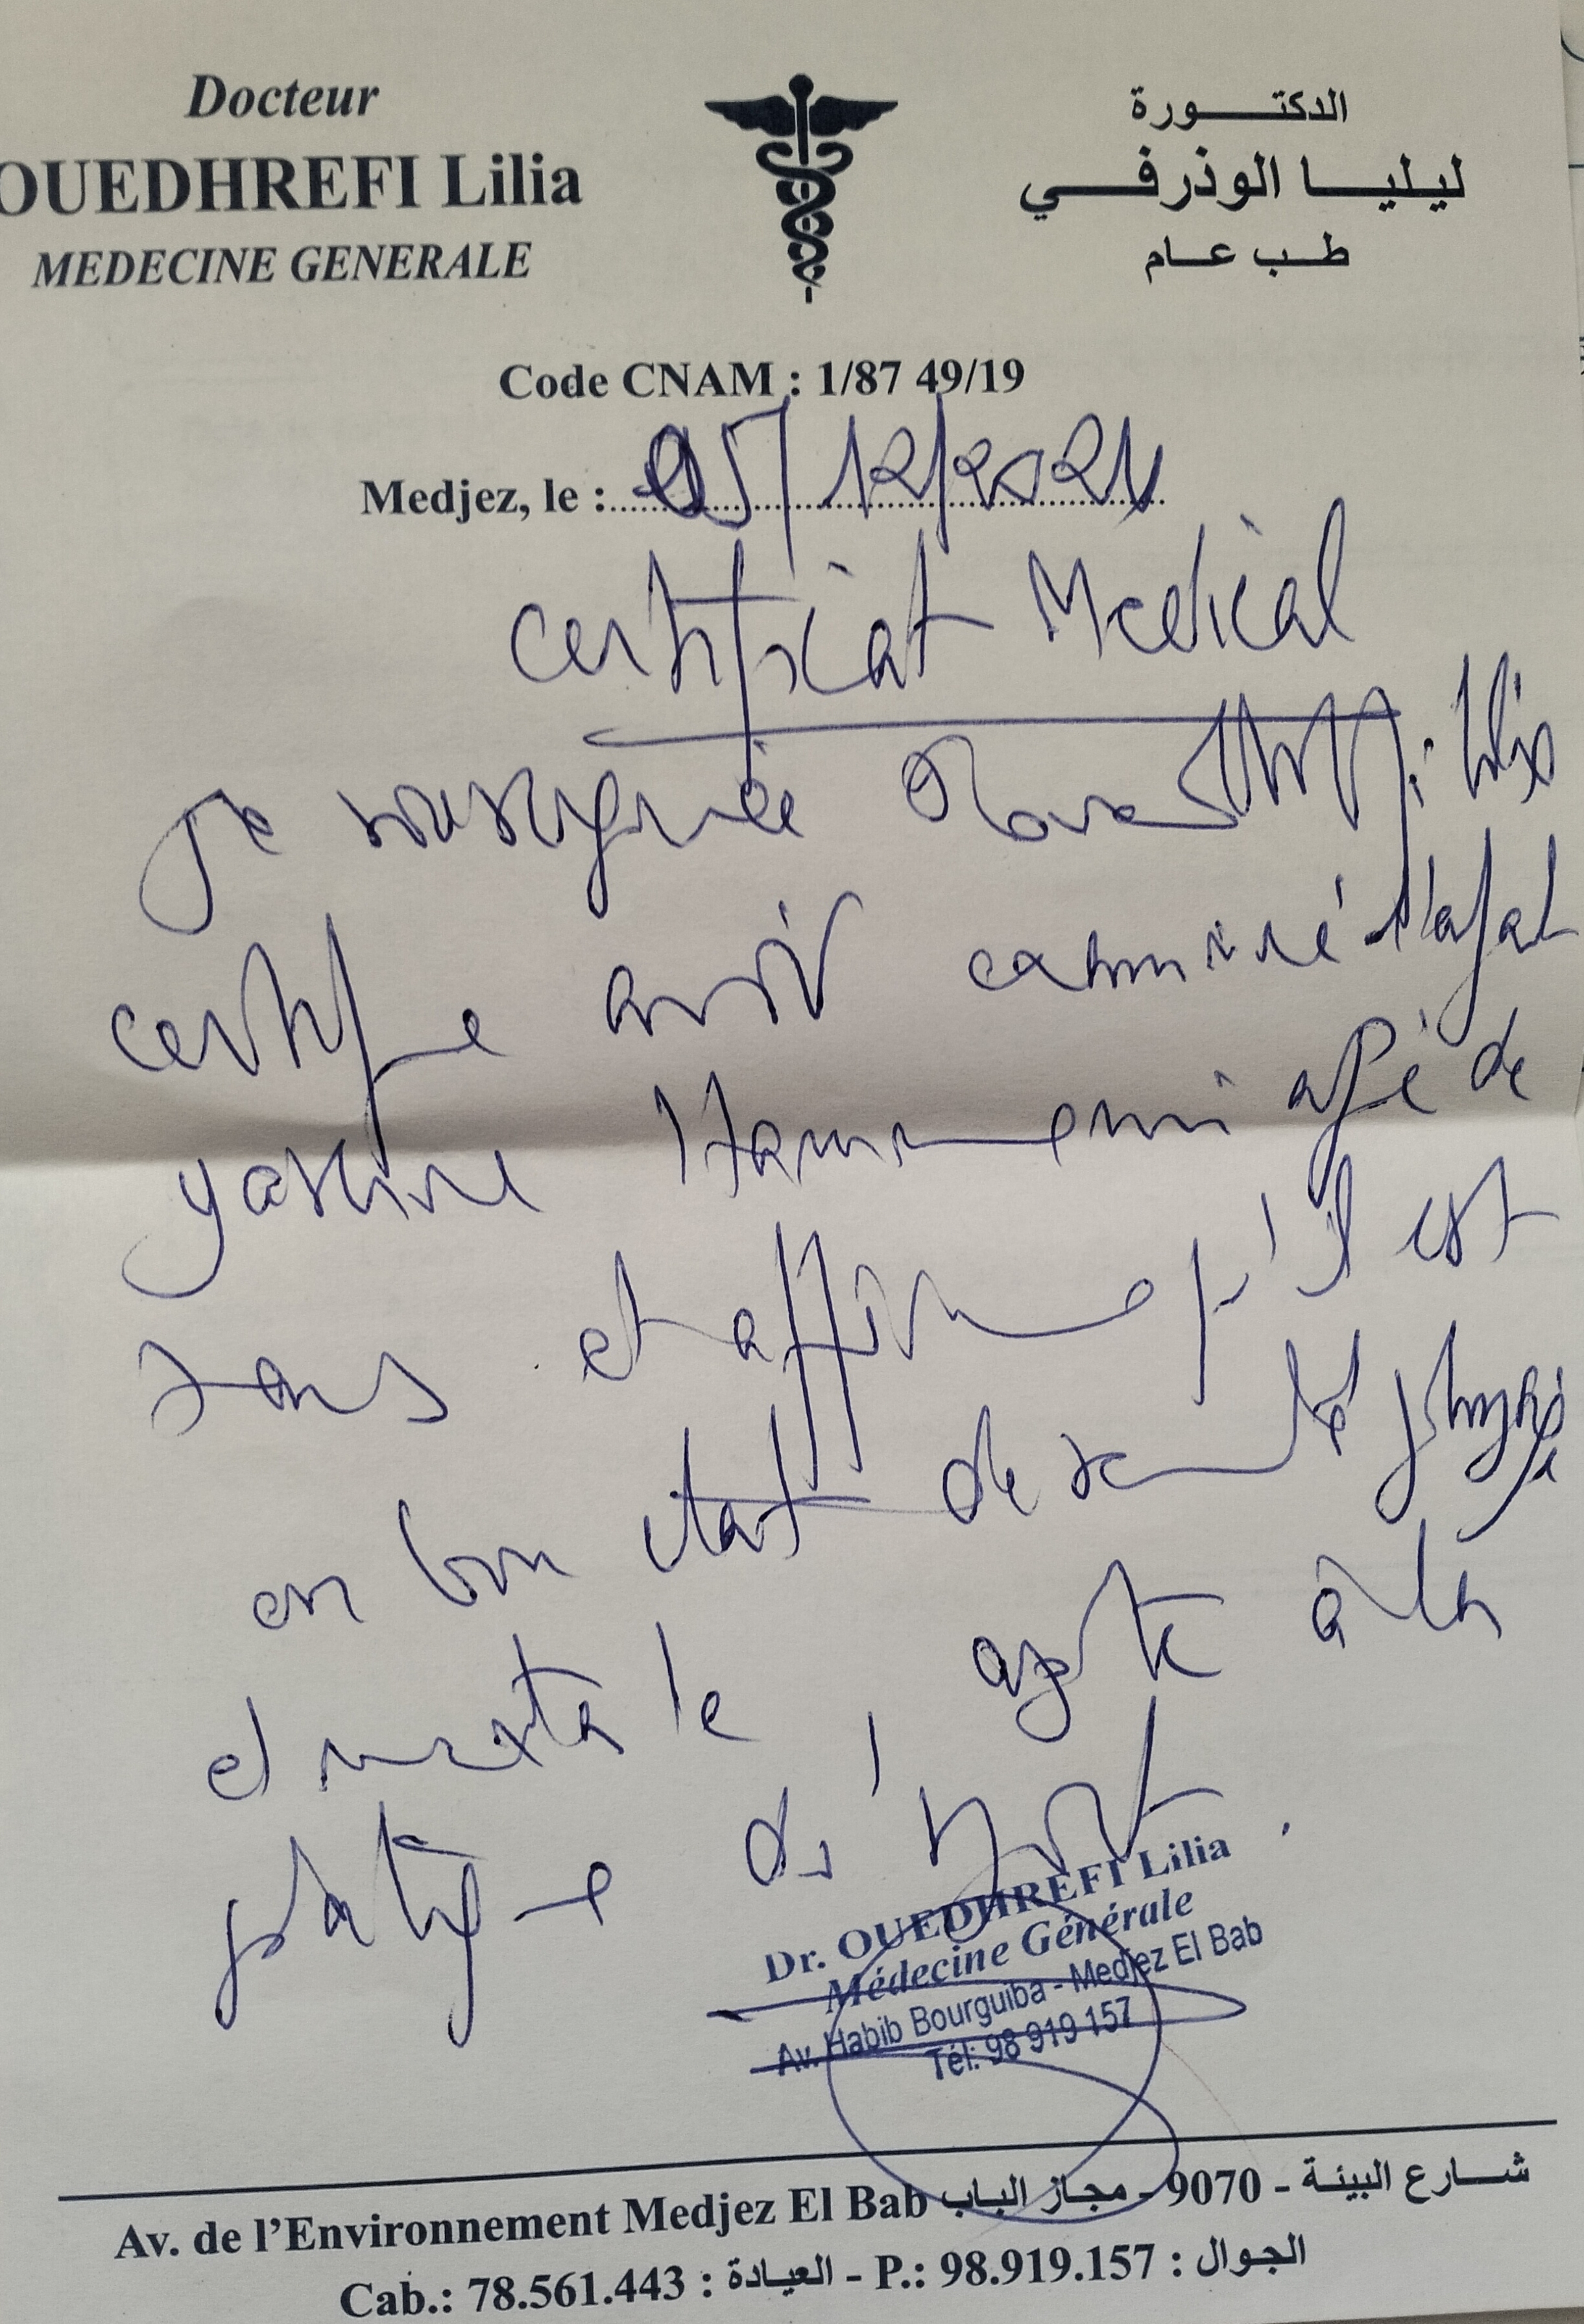 Docteur
OUEDHREFI Lilia
MEDECINE GENERALE
الدكتورة
ليليا الوذرفي
طب عام
Code CNAM : 1/87 49/19
Medjez, le : 05/12/2024
Certificat Medical
Je soussignée
certifie avoir examiné
yassine Hammemi agé de
ans et affirme qu'il est
en bon état de santé physique
et mentale, apte à la
pratique du sport.
Dr. OUEDHREFI Lilia
Médecine Générale
Av. Habib Bourguiba - Medjez El Bab
Tél: 98 919 157
Av. de l'Environnement Medjez El Bab شارع البيئة - 9070 - مجاز الباب
Cab.: 78.561.443 : العيادة - P.: 98.919.157 : الجوال